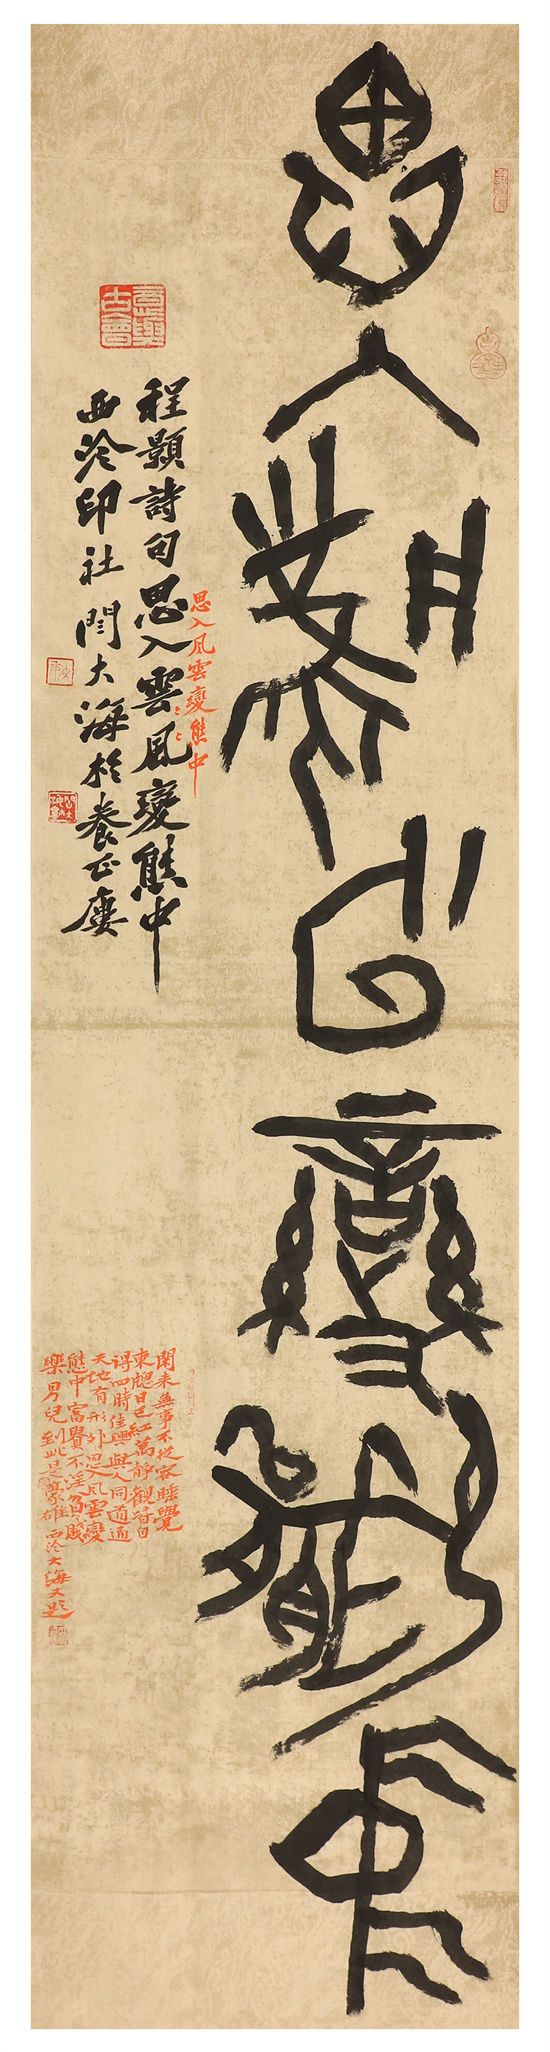 思入風云變態中
思入風雲變態中
程顥詩句思入雲風變態中
西泠印社閆大海於養正廔
意與古會
閑來無事不從容睡覺
東牕日已紅萬靜觀皆自
得四時佳興與人同道通
天地有形外思入風雲變
態中富貴不淫貧賤
樂男兒到此是豪雄西泠大海又題